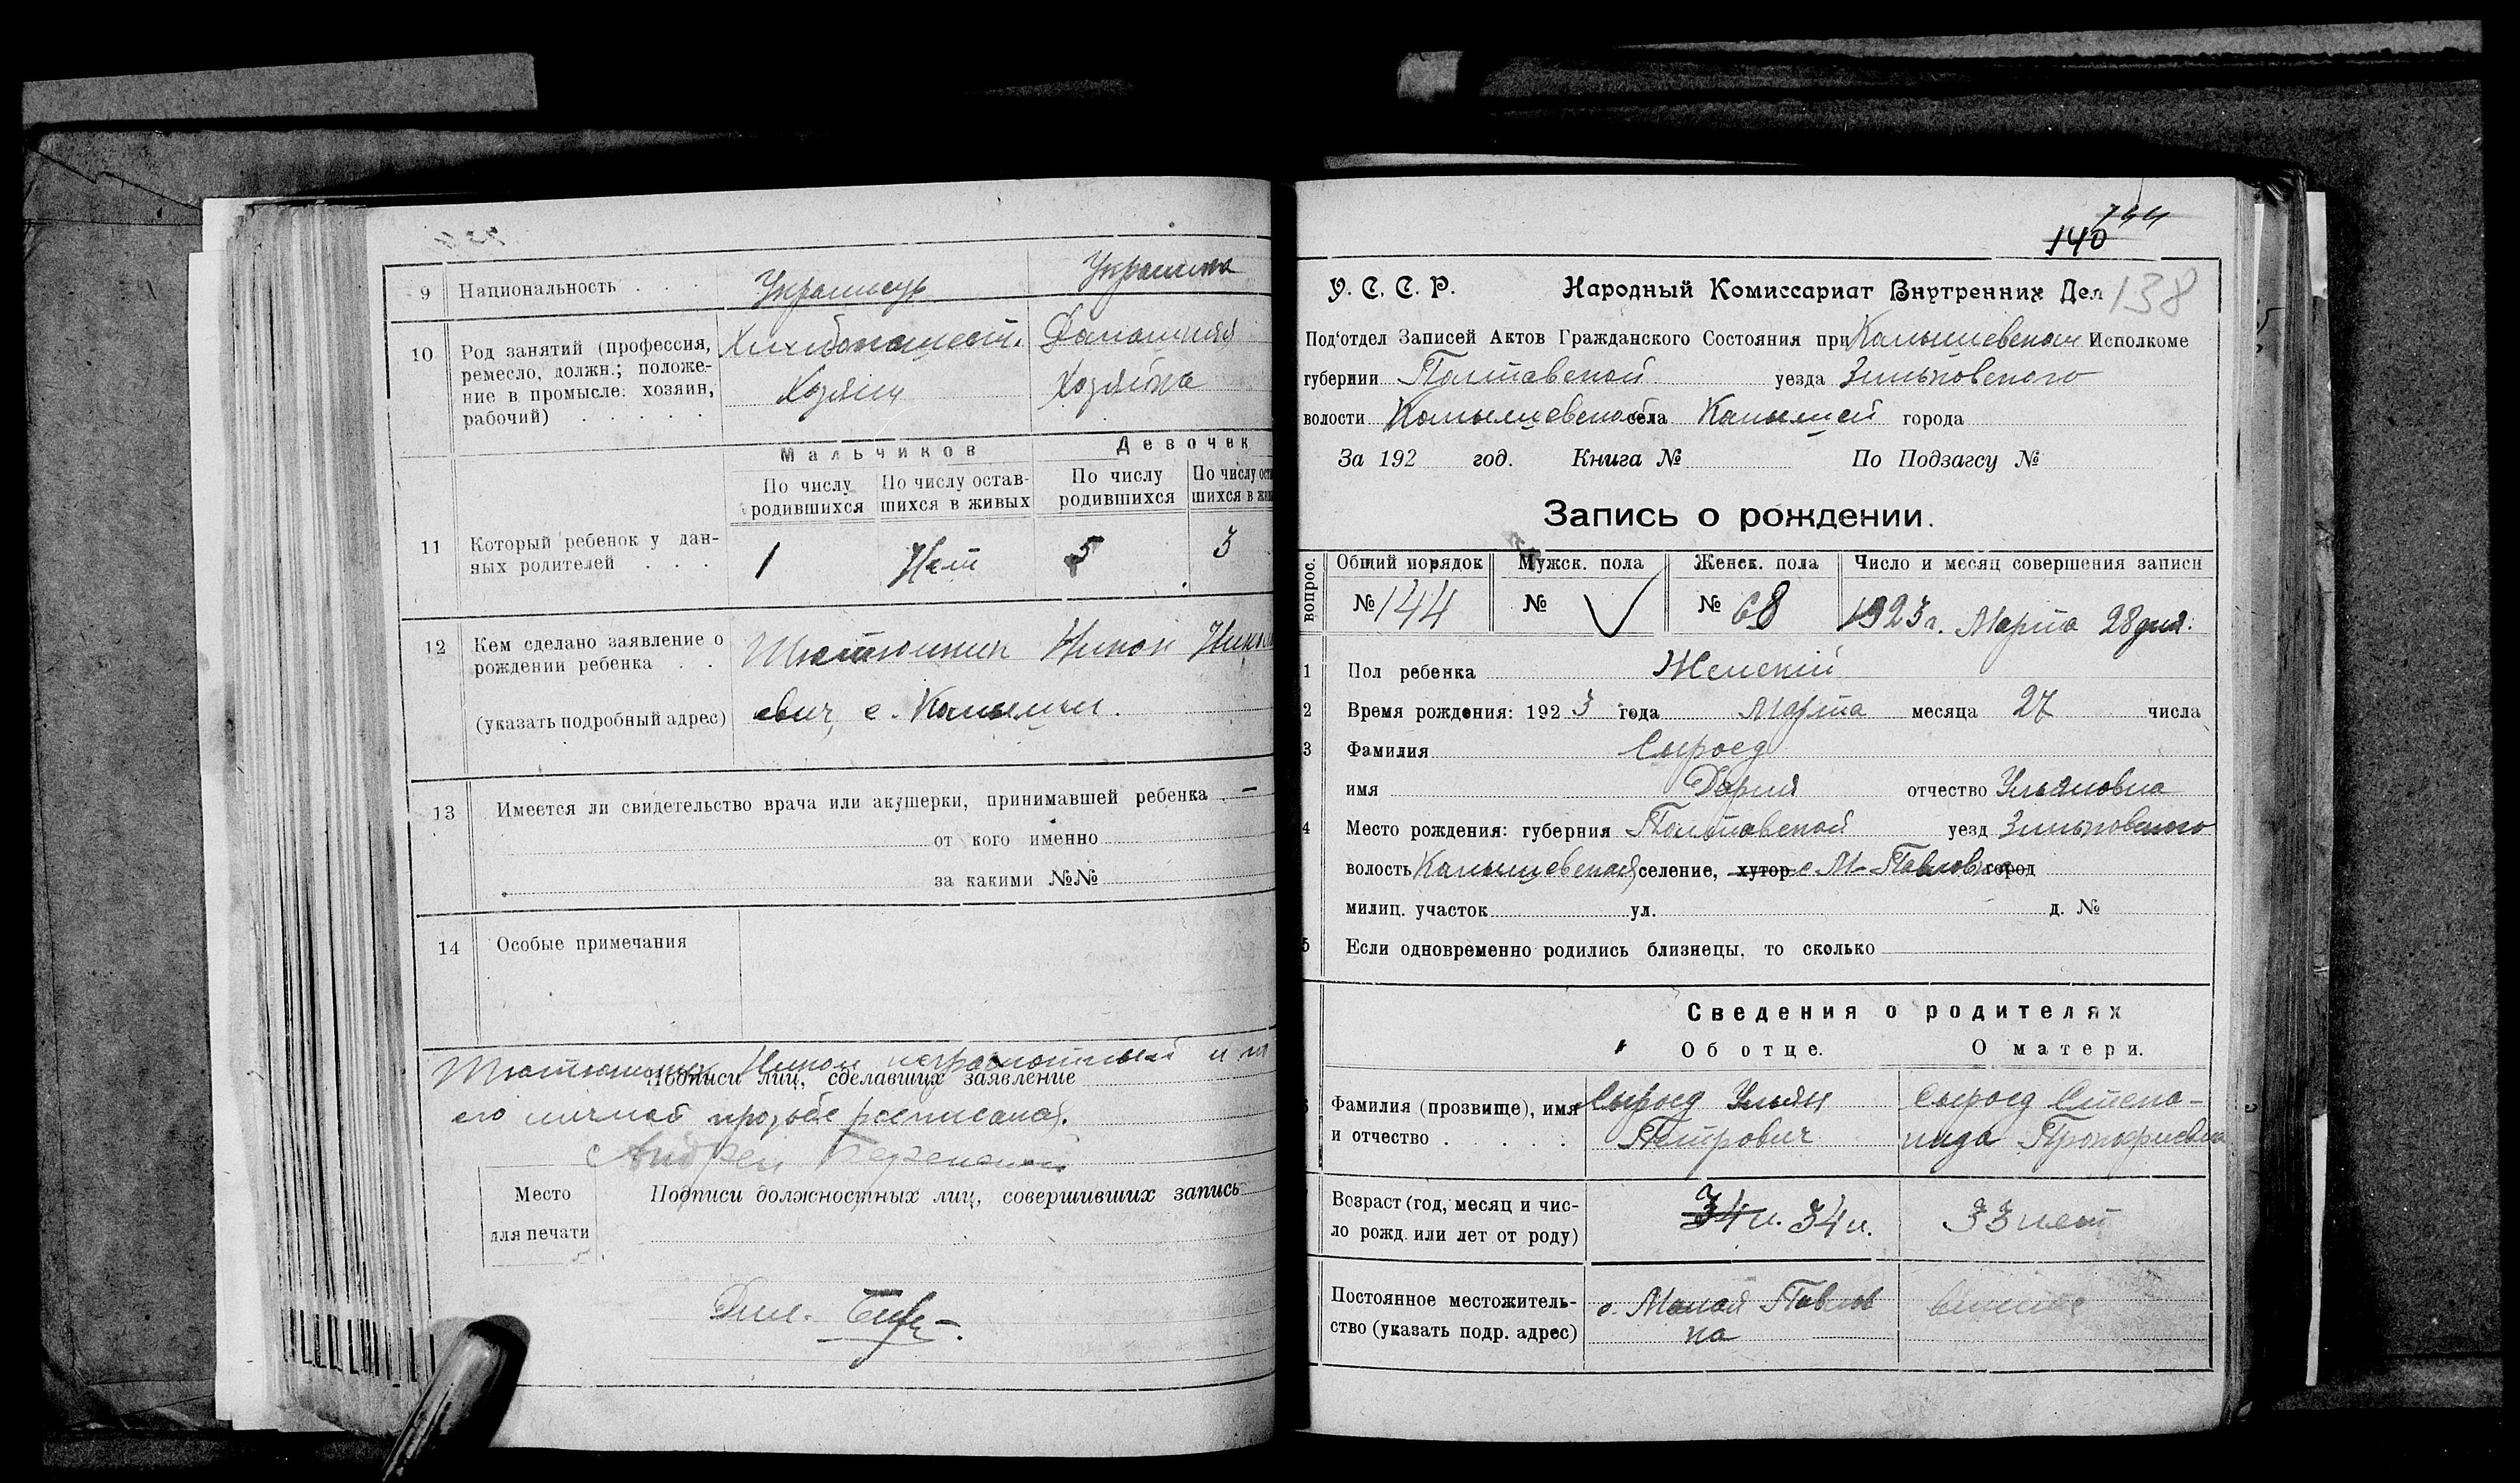 9 Национальность . . . Украинец Украинка
10 Род занятий (профессия, ремесло, должн.; положение в промысле: хозяин, рабочий) . . . . .
Хлебопашест. Домашняя
Хозяин Хозяйка
Мальчиков Девочек
По числу родившихся По числу оставшихся в живых По числу родившихся По числу оста
шихся в жи
11 Который ребенок у дан-
ных родителей . . .
1 Нет 5 3
12 Кем сделано заявление о
рождении ребенка . .
Тютюнник Никон
(указать подробный адрес) евич, с. Камыши.
13 Имеется ли свидетельство врача или акушерки, принимавшей ребенка . —
от кого именно
за какими №№
14 Особые примечания
Тютюнник Никон неграмотный и п
Подписи лиц, сделавших заявление
его личной прозьбе росписался.
Андрей
Место
для печати
Подписи должностных лиц, совершивших запись
144
140
138
У. С. С. Р. Народный Комиссариат Внутренних Дел
Под'отдел Записей Актов Гражданского Состояния при Камышевском Исполкоме
губернии Полтавской уезда Зиньковского
волости Камышевской села Камышей города
За 192 год. Книга № По Подзагсу №
Запись о рождении.
вопрос. Общий порядок Мужск. пола Женск. пола Число и месяц совершения записи
№ 144 № № 68 1923 г. Марта 28 дня.
1 Пол ребенка Женский
2 Время рождения: 1923 года Марта месяца 27 числа
3 Фамилия Сыроед
имя Дария отчество Ульяновна
4 Место рождения: губерния Полтавской уезд Зиньковского
волость Камышевской селение, хутор с. М-Павловка город
милиц. участок ул. д. №
5 Если одновременно родились близнецы, то сколько
Сведения о родителях
Об отце. О матери.
Фамилия (прозвище), имя
и отчество . . . . .
Сыроед Ульян
Петрович
Сыроед Степа-
нида Прокофиевна
Возраст (год, месяц и чис-
ло рожд. или лет от роду)
34 л. 34 л. 33 лет
Постоянное местожитель-
ство (указать подр. адрес)
с. Малой Павлов
ка